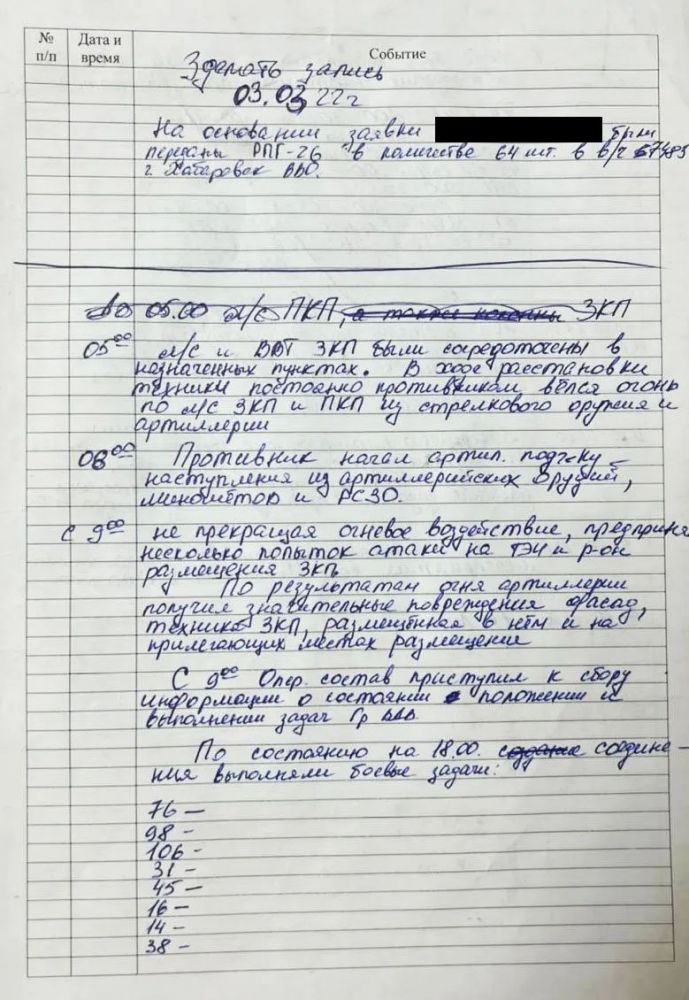 № п/п
Дата и время
Событие
Зделать запись
03.03.22г
На основании заявки были
переданы РПГ-26 в количестве 64 шт. в в/ч
г. Хабаровск ВВО.
До 05.00 л/с ПКП, ЗКП
05⁰⁰ л/с и ВВТ ЗКП были сосредоточены в
назначенных пунктах. В ходе расстановки
техники постоянно противником вёлся огонь
по л/с ЗКП и ПКП из стрелкового оружия и
артиллерии
08⁰⁰ Противник начал артил. подг-ку
наступления из артиллерийских орудий,
миномётов и РСЗО.
С 9⁰⁰ не прекращая огневое воздействие, предприня
несколько попыток атаки на ТЭЧ и р-он
размещения ЗКП.
По результатам огня артиллерии
получил значительные повреждения фасад,
техника ЗКП, размещённая в нём и на
прилегающих местах размещения
С 9⁰⁰ Опер. состав приступил к сбору
информации о состоянии положении и
выполнении задач Гр ВДВ.
По состоянию на 18.00. соедине-
ния выполняли боевые задачи:
76 —
98 -
106 -
31 -
45 —
16 -
14 -
38 -